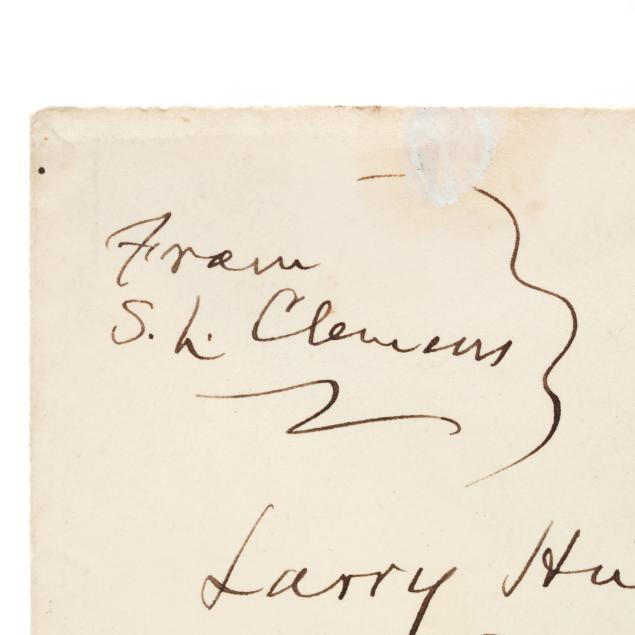 From
S. L. Clemens
Larry Hu